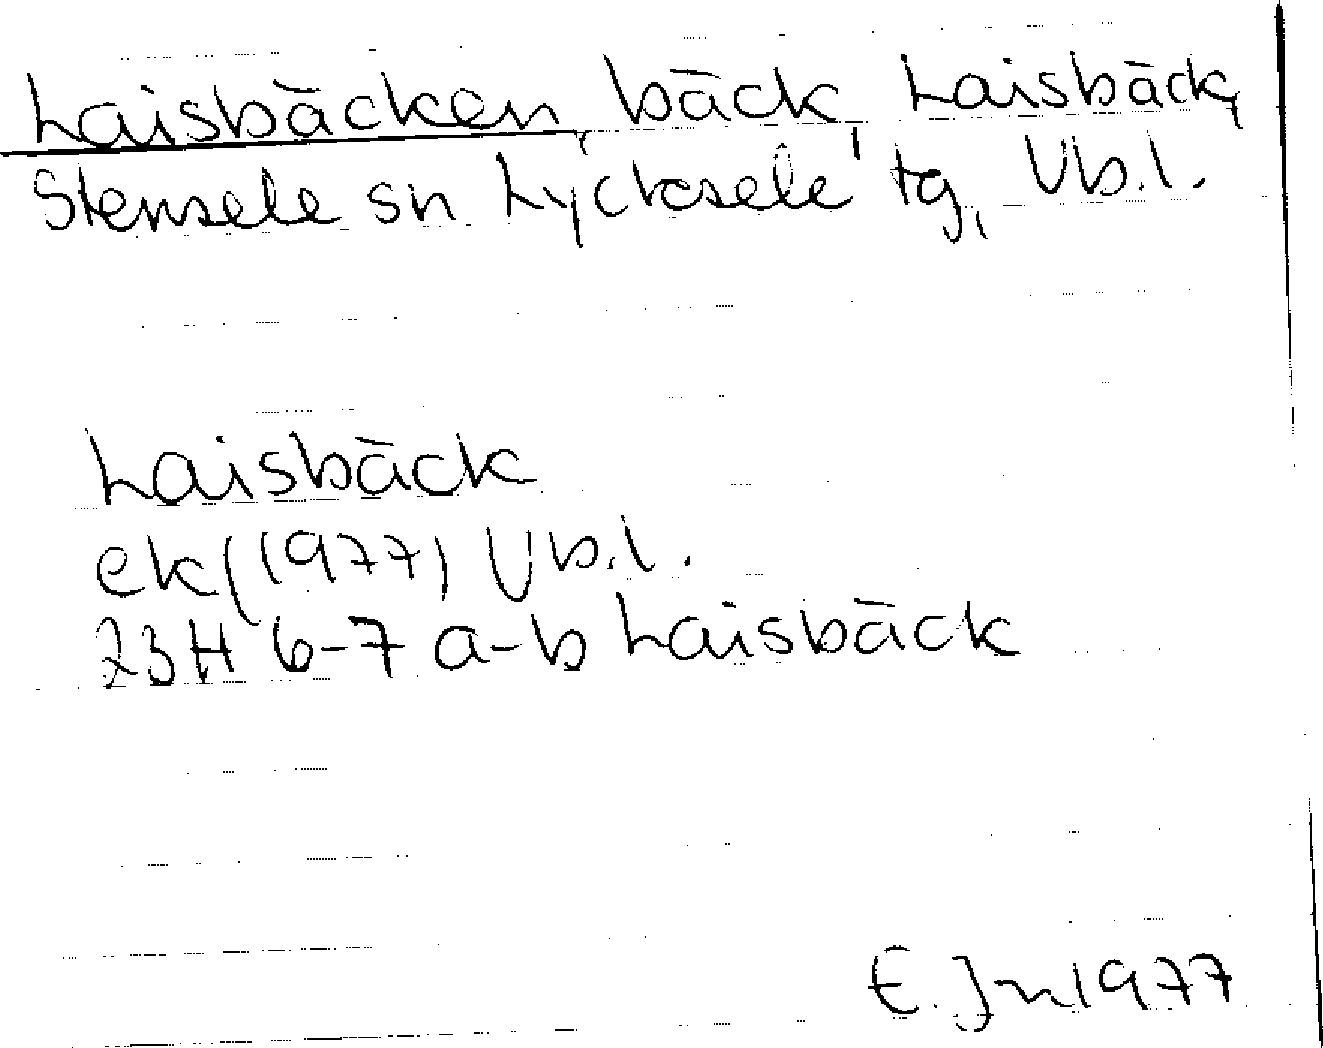 Laisbäcken, bäck, Laisbäck,
Stensele sn Lycksele tg, Vb.l.
Laisbäck
ek (1977) Vb.l.
23H 6-7 a-b Laisbäck
E. Jn 1977